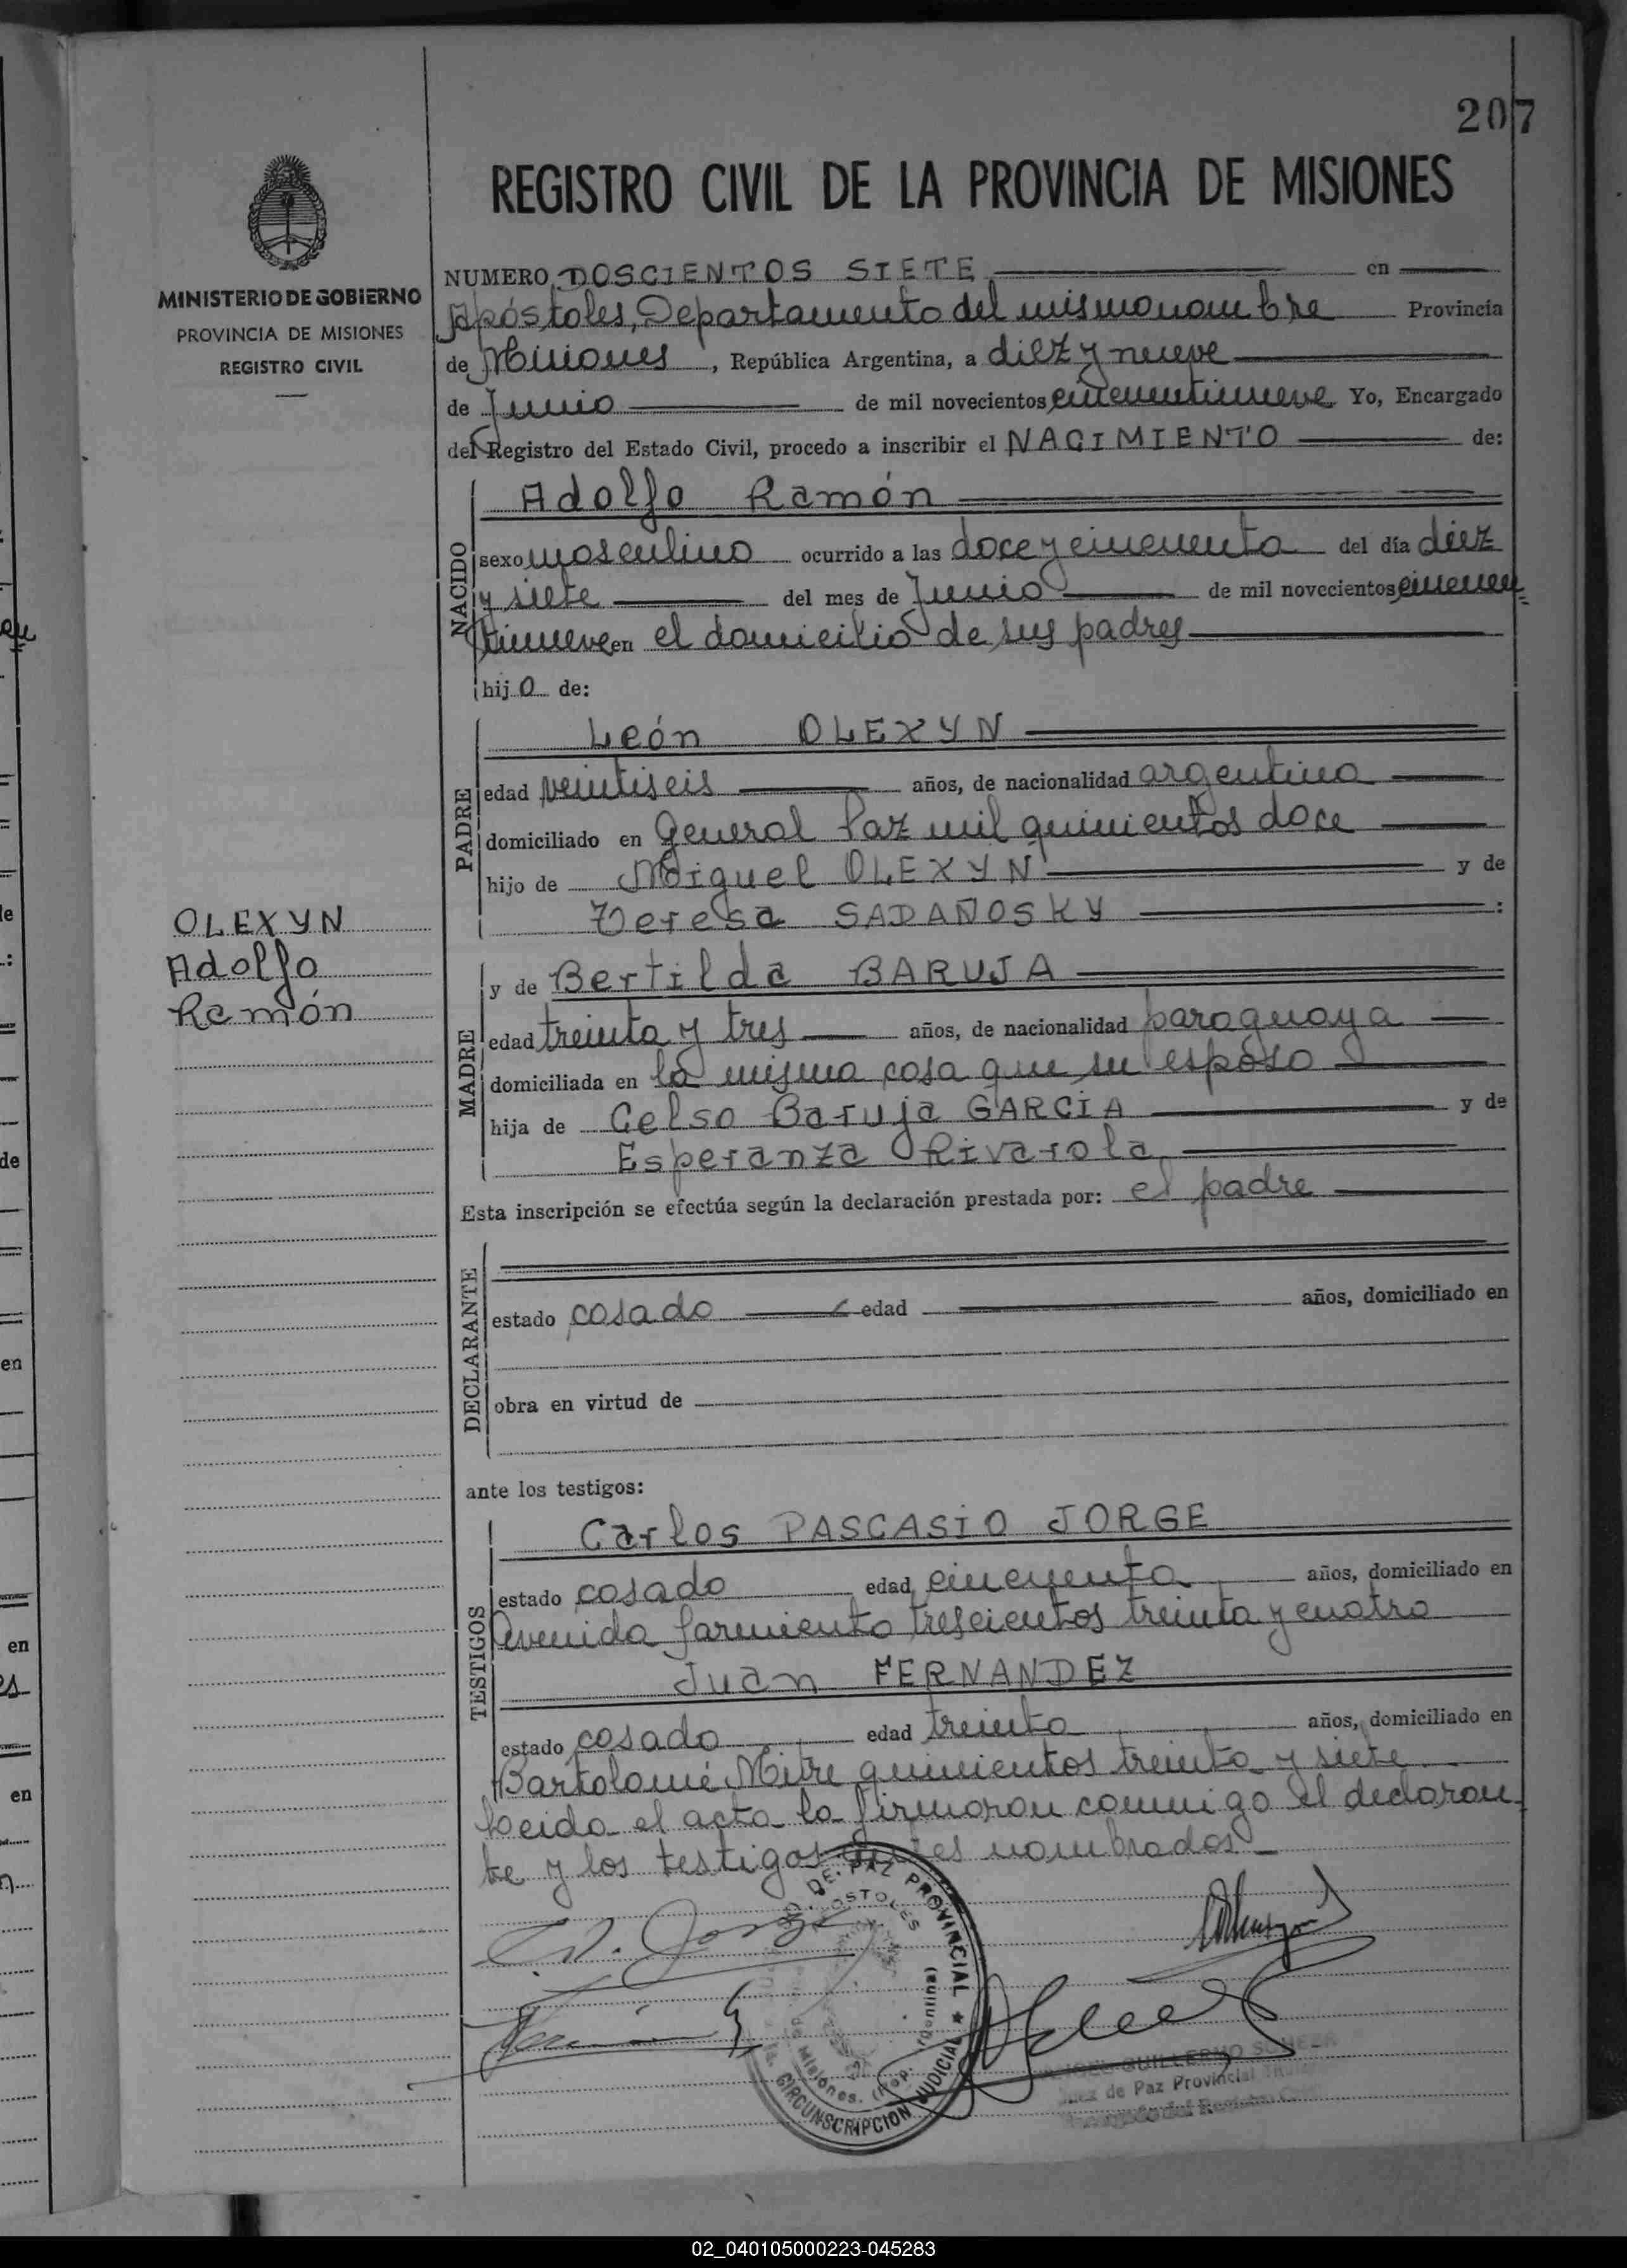 207
REGISTRO CIVIL DE LA PROVINCIA DE MISIONES
MINISTERIO DE GOBIERNO
PROVINCIA DE MISIONES
REGISTRO CIVIL
NUMERO DOSCIENTOS SIETE en
Apóstoles, Departamento del mismo nombre Provincia
de Misiones, República Argentina, a diez y nueve
de Junio de mil novecientos cincuentinueve Yo, Encargado
del Registro del Estado Civil, procedo a inscribir el NACIMIENTO de:
NACIDO
Adolfo Ramón
sexo masculino ocurrido a las doce y cincuenta del día diez
y siete del mes de Junio de mil novecientos cincuen
tinueve en el domicilio de sus padres
hijo de:
PADRE
León OLEXYN
edad veintiseis años, de nacionalidad argentina
domiciliado en General Paz mil quinientos doce
hijo de Miguel OLEXYN y de
Teresa SADAÑOSKY :
OLEXYN
Adolfo
Ramón
MADRE
y de Bertilda BARUJA
edad treinta y tres años, de nacionalidad paraguaya
domiciliada en la misma casa que su esposo
hija de Celso Baruja GARCIA y de
Esperanza Rivarola
Esta inscripción se efectúa según la declaración prestada por: el padre
DECLARANTE
estado casado edad años, domiciliado en
obra en virtud de
ante los testigos:
TESTIGOS
Carlos PASCASIO JORGE
estado casado edad cincuenta años, domiciliado en
Avenida Sarmiento trescientos treinta y cuatro
Juan FERNANDEZ
estado casado edad treinta años, domiciliado en
Bartolomé Mitre quinientos treinta y siete
Leida el acta la firmaron conmigo el declaran
te y los testigos antes nombrados
DE PAZ PROVINCIAL
CIRCUNSCRIPCION JUDICIAL
Misiones. (Rep. Argentina)
GUILLERMO
Juez de Paz Provincial
Encargado del Registro Civil
02_040105000223-045283